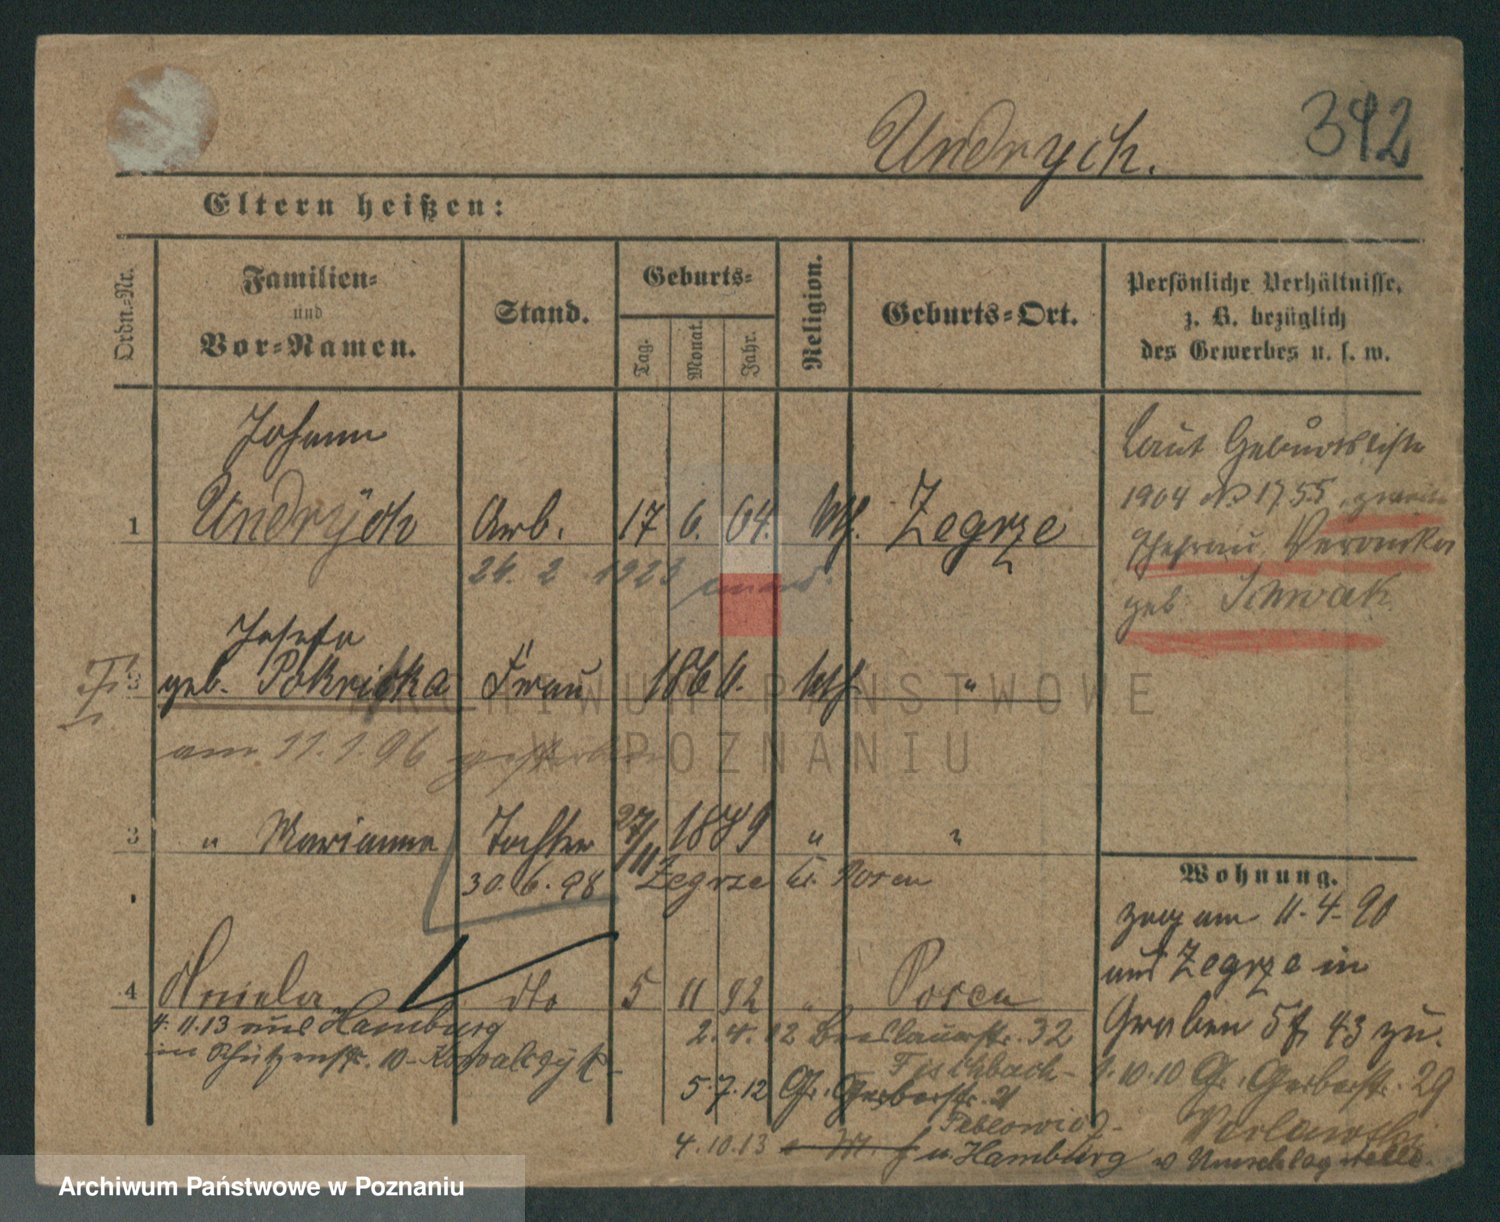 Undrych.
342
Eltern heißen:
Ordn.=Nr.
Familien=
und
Vor=Namen.
Stand.
Geburts=
Tag.
Monat.
Jahr.
Religion.
Geburts=Ort.
Persönliche Verhältnisse,
z. B. bezüglich
des Gewerbes u. s. w.
Johann
1 Undrÿch Arb. 17 6. 64. kth. Zegrze
24. 2 1923
Laut Geburtsliste
1904 No 1755, zweite
Ehefrau, Veronika
geb.
Josefa
geb. Pokrifka Frau 1860. kth. "
am 11.1.96 gestorben
3 " Marianna Tochter 27/11 1889 " "
30.6.98 Zegrze Posen
4 dto 5 11 92 " Posen
4.11.13 aus Hamburg
in Schützenstr. 10 Kowalczyk
2.4.12 Breslauerstr. 32
Fischbach
5.7.12 Gr. Gerberstr. 21
4.10.13 n. Hamburg
Wohnung.
zog am 11.4.90
aus Zegrze in
Graben 5 f 43 zu.
1.10.10 Gr. Gerberstr. 29
ARCHIWUM PAŃSTWOWE
W POZNANIU
Archiwum Państwowe w Poznaniu